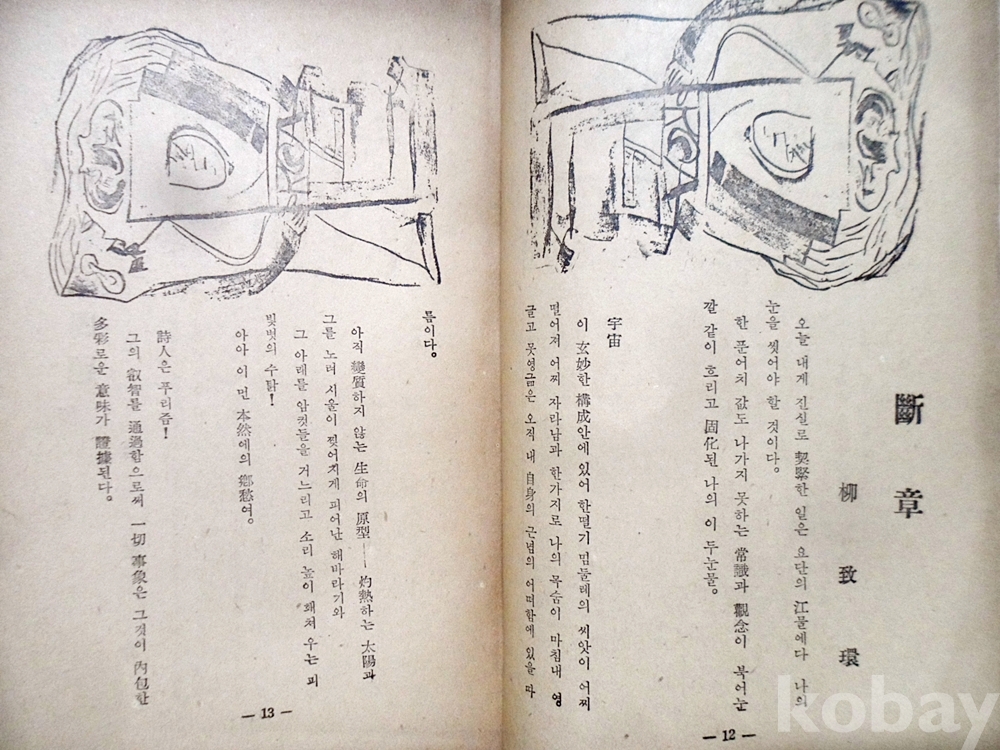 斷章
柳致環
오늘 내게 진실로 契緊한 일은 요단의 江물에다 나의
눈을 씻어야 할 것이다.
한 푼어치 값도 나가지 못하는 常識과 觀念이 북어눈
깔 같이 흐리고 固化된 나의 이 두눈물。
宇宙
이 玄妙한 構成안에 있어 한떨기 멈둘레의 씨앗이 어찌
떨어저 어찌 자라남과 한가지로 나의 목숨이 마침내 영
글고 못영금은 오직 내 自身의 근념의 어떠함에 있을 따
— 12 —
름이다。
아직 變質하지 않는 生命의 原型—— 灼熱하는 太陽과
그를 노려 시울이 찢어지게 피어난 해바라기와
그 아래를 암컷들을 거느리고 소리 높이 홰처 우는 피
빛볏의 수탉!
아아 이 먼 本然에의 鄕愁여。
詩人은 푸리즘!
그의 叡智를 通過함으로써 一切 事象은 그것이 內包한
多彩로운 意味가 證據된다。
— 13 —
kobay